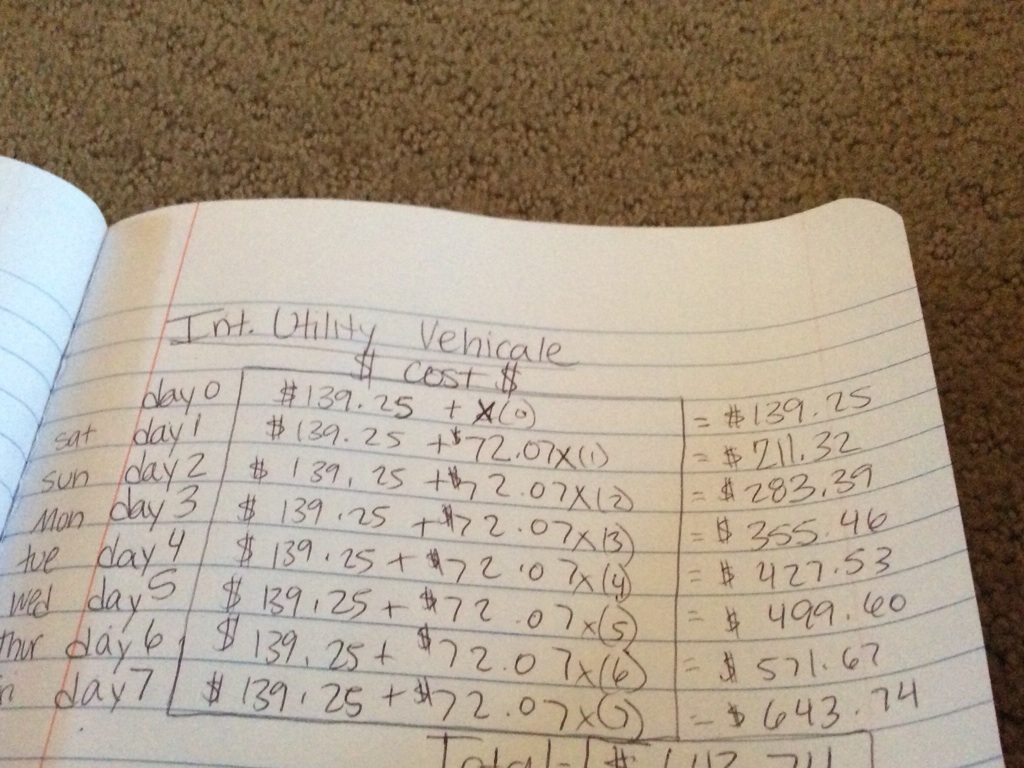 Int. Utility Vehicale
$ cost $
day 0 $139.25 + x(0) = $139.25
sat day 1 $139.25 + $72.07x(1) = $211.32
sun day 2 $139.25 + $72.07x(2) = $283.39
Mon day 3 $139.25 + $72.07x(3) = $355.46
tue day 4 $139.25 + $72.07x(4) = $427.53
wed day 5 $139.25 + $72.07x(5) = $499.60
thur day 6 $139.25 + $72.07x(6) = $571.67
day 7 $139.25 + $72.07x(7) = $643.74
Total = $